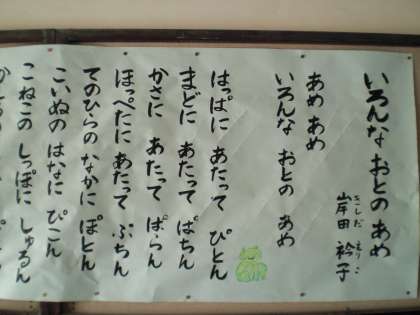 いろんな おとの あめ
岸田 衿子
きしだ えりこ
あめ あめ
いろんな おとの あめ
はっぱに あたって ぴとん
まどに あたって ぱちん
かさに あたって ぱらん
ほっぺたに あたって ぷちん
てのひらの なかに ぽとん
こいぬの はなに ぴこん
こねこの しっぽに しゅるん